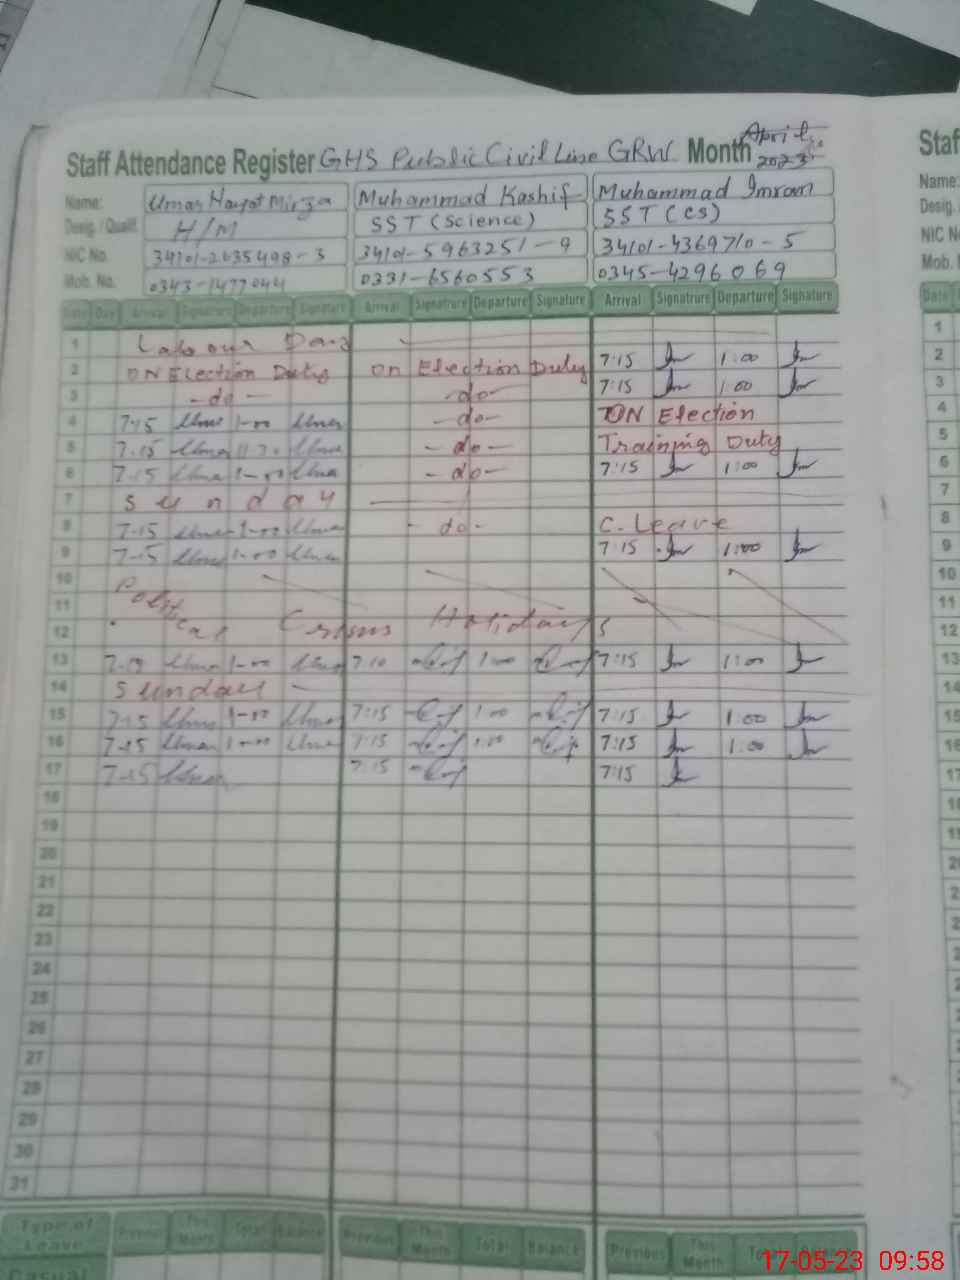 Staff Attendance Register GHS Public Civil Line GRW Month April 2023
Name: Umar Hayat Mirza Muhammad Kashif Muhammad Imran
Desig./Qualif. H/M SST (Science) SST (CS)
NIC No. 34101-2635498-3 34101-5963251-9 34101-4369710-5
Mob. No. 0343-1477044 0331-6560553 0345-4296069
Date Day Arrival Signatrure Departure Signature Arrival Signatrure Departure Signature Arrival Signatrure Departure Signature
1 Labour Day
2 ON Election Duty on Election Duty 7:15 1:00
3 -do- -do- 7:15 1:00
4 7-15 1-00 -do- ON Election
5 7-15 -do- Training Duty
6 7-15 1-00 -do- 7:15 1:00
7 Sunday
8 7-15 1-00 -do- C. Leave
9 7-15 1-00 7:15 1:00
10
11 Political
12 Holidays
13 1-00 7:10 1:00 7:15 1:00
14 Sunday
15 7-15 1-00 7:15 1:00 7:15 1:00
16 7-15 1-00 7:15 7:15 1:00
17 7-15 7:15 7:15
18
19
20
21
22
23
24
25
26
27
28
29
30
31
Type of Leave Previous This Month Total Balance Previous This Month Total Balance Previous This Month
Casual
Staf
Name:
Desig.
NIC N
Mob.
Date
1
2
3
4
5
6
7
8
9
10
11
12
13
14
15
16
17
17-05-23 09:58